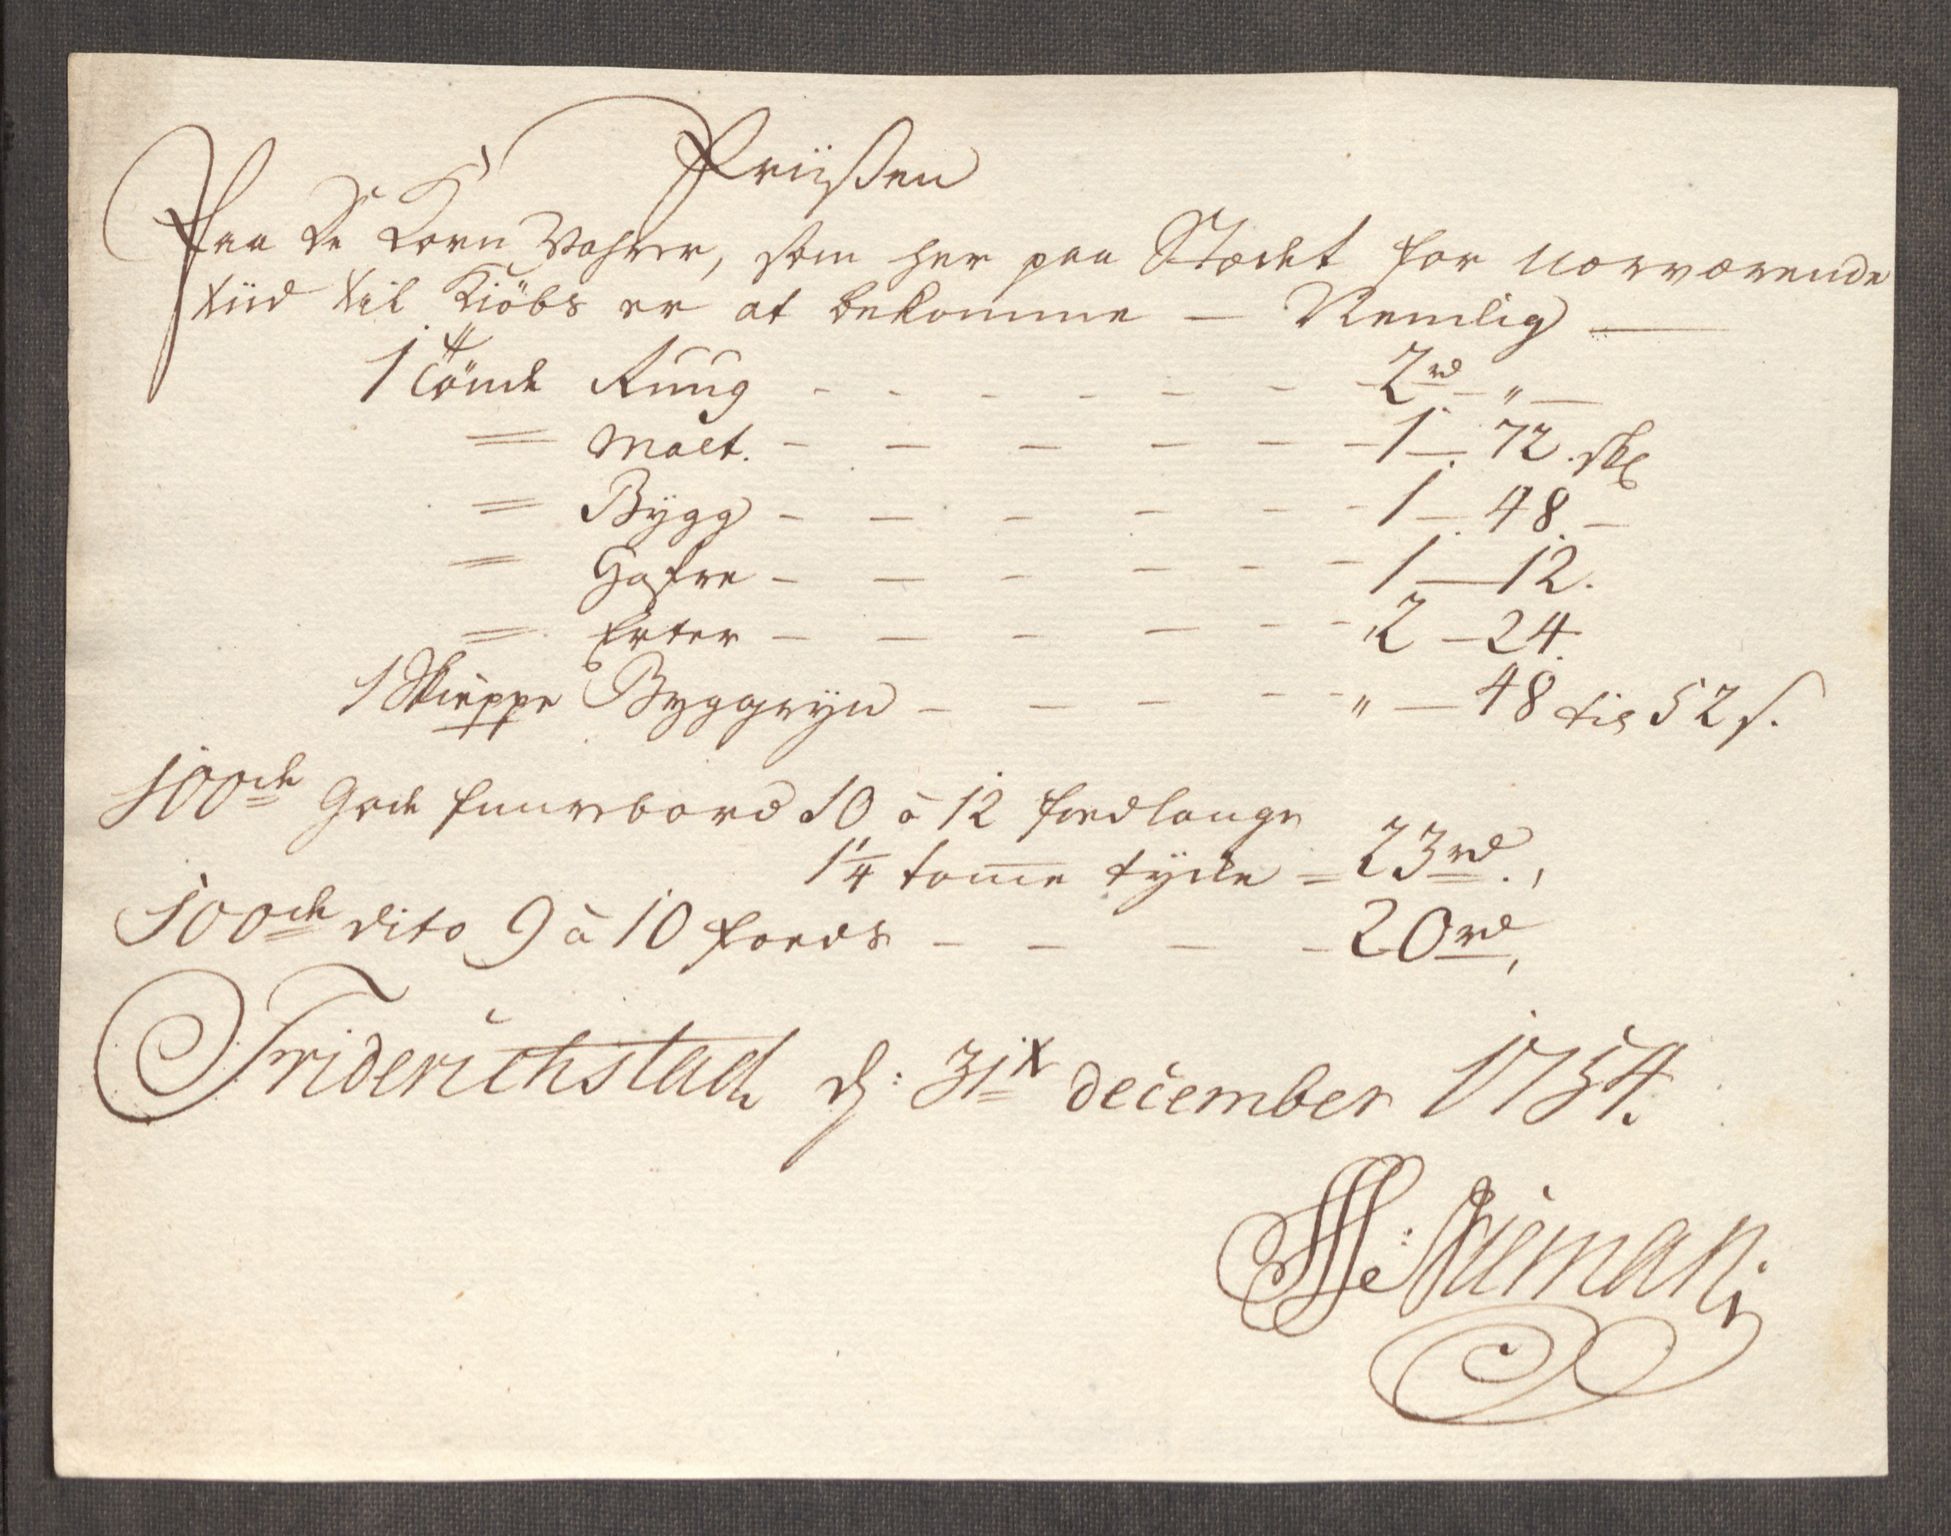 Priisen
Paa de Korn Wahrer, som her paa Stædet for nærværende
tiid til Kiöbs er at bekomme — Nemlig —
1 Tönde Ruug - - - - - - 2 rd „ —
= Malt. - - - - - - 1 — 72 skl
= Bygg - - - - - - 1 — 48 —
= Hafre - - - - - - 1 — 12.
= Erter - - - - - - 2 — 24.
1 Skieppe Byggryn - - - - - „ — 48 til 52 s.
100de gode fuurebord 10 à 12 foed lange
1 1/4 tome tycke = 23 rd.,
100de dito 9 à 10 foeds - - - - 20 rd,
Friderichstad d: 31te december 1754.